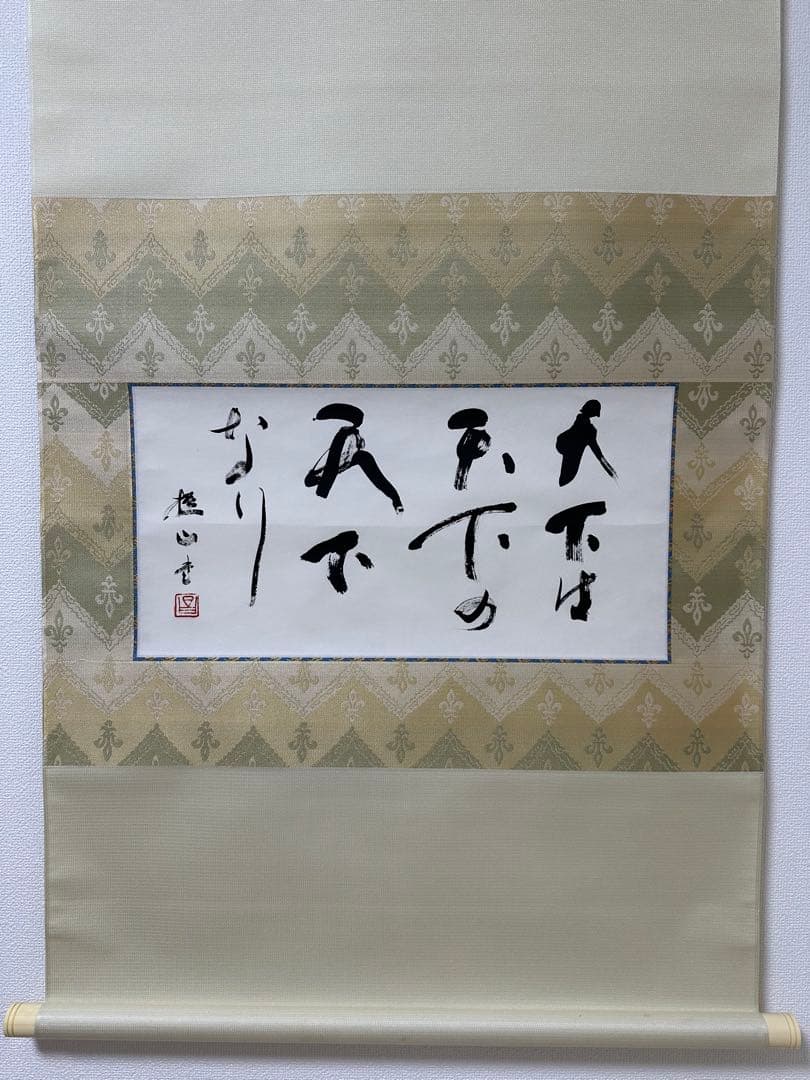 天下は
天下の
天下
なり
山書